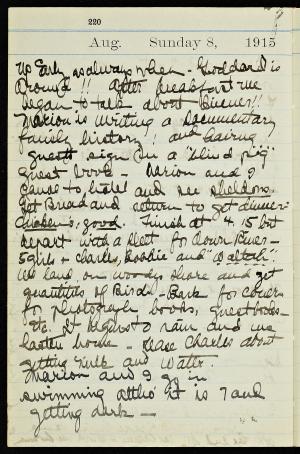 220
Aug. Sunday 8, 1915
Up Early as always when - Goddard is
Around!! After breakfast we
began to talk about
Marion is writing a Documentary
family history! and having
guests sign in a "blind pig"
guest book - Marion and I
canoe to hotel and see Sheldons.
Get Bread and return to get dinner -
Chicken is good. Finish at 4.15 but
depart with a fleet for down River -
5 girls + Charles, Robbie and
We land on woodsy shore and get
quantities of Birch - Bark for covers
for photograph books, guest books -
etc. It begins to rain and we
hasten home - tease Charles about
getting milk and water.
Marion and I go in
swimming altho it is 7 and
getting dark -